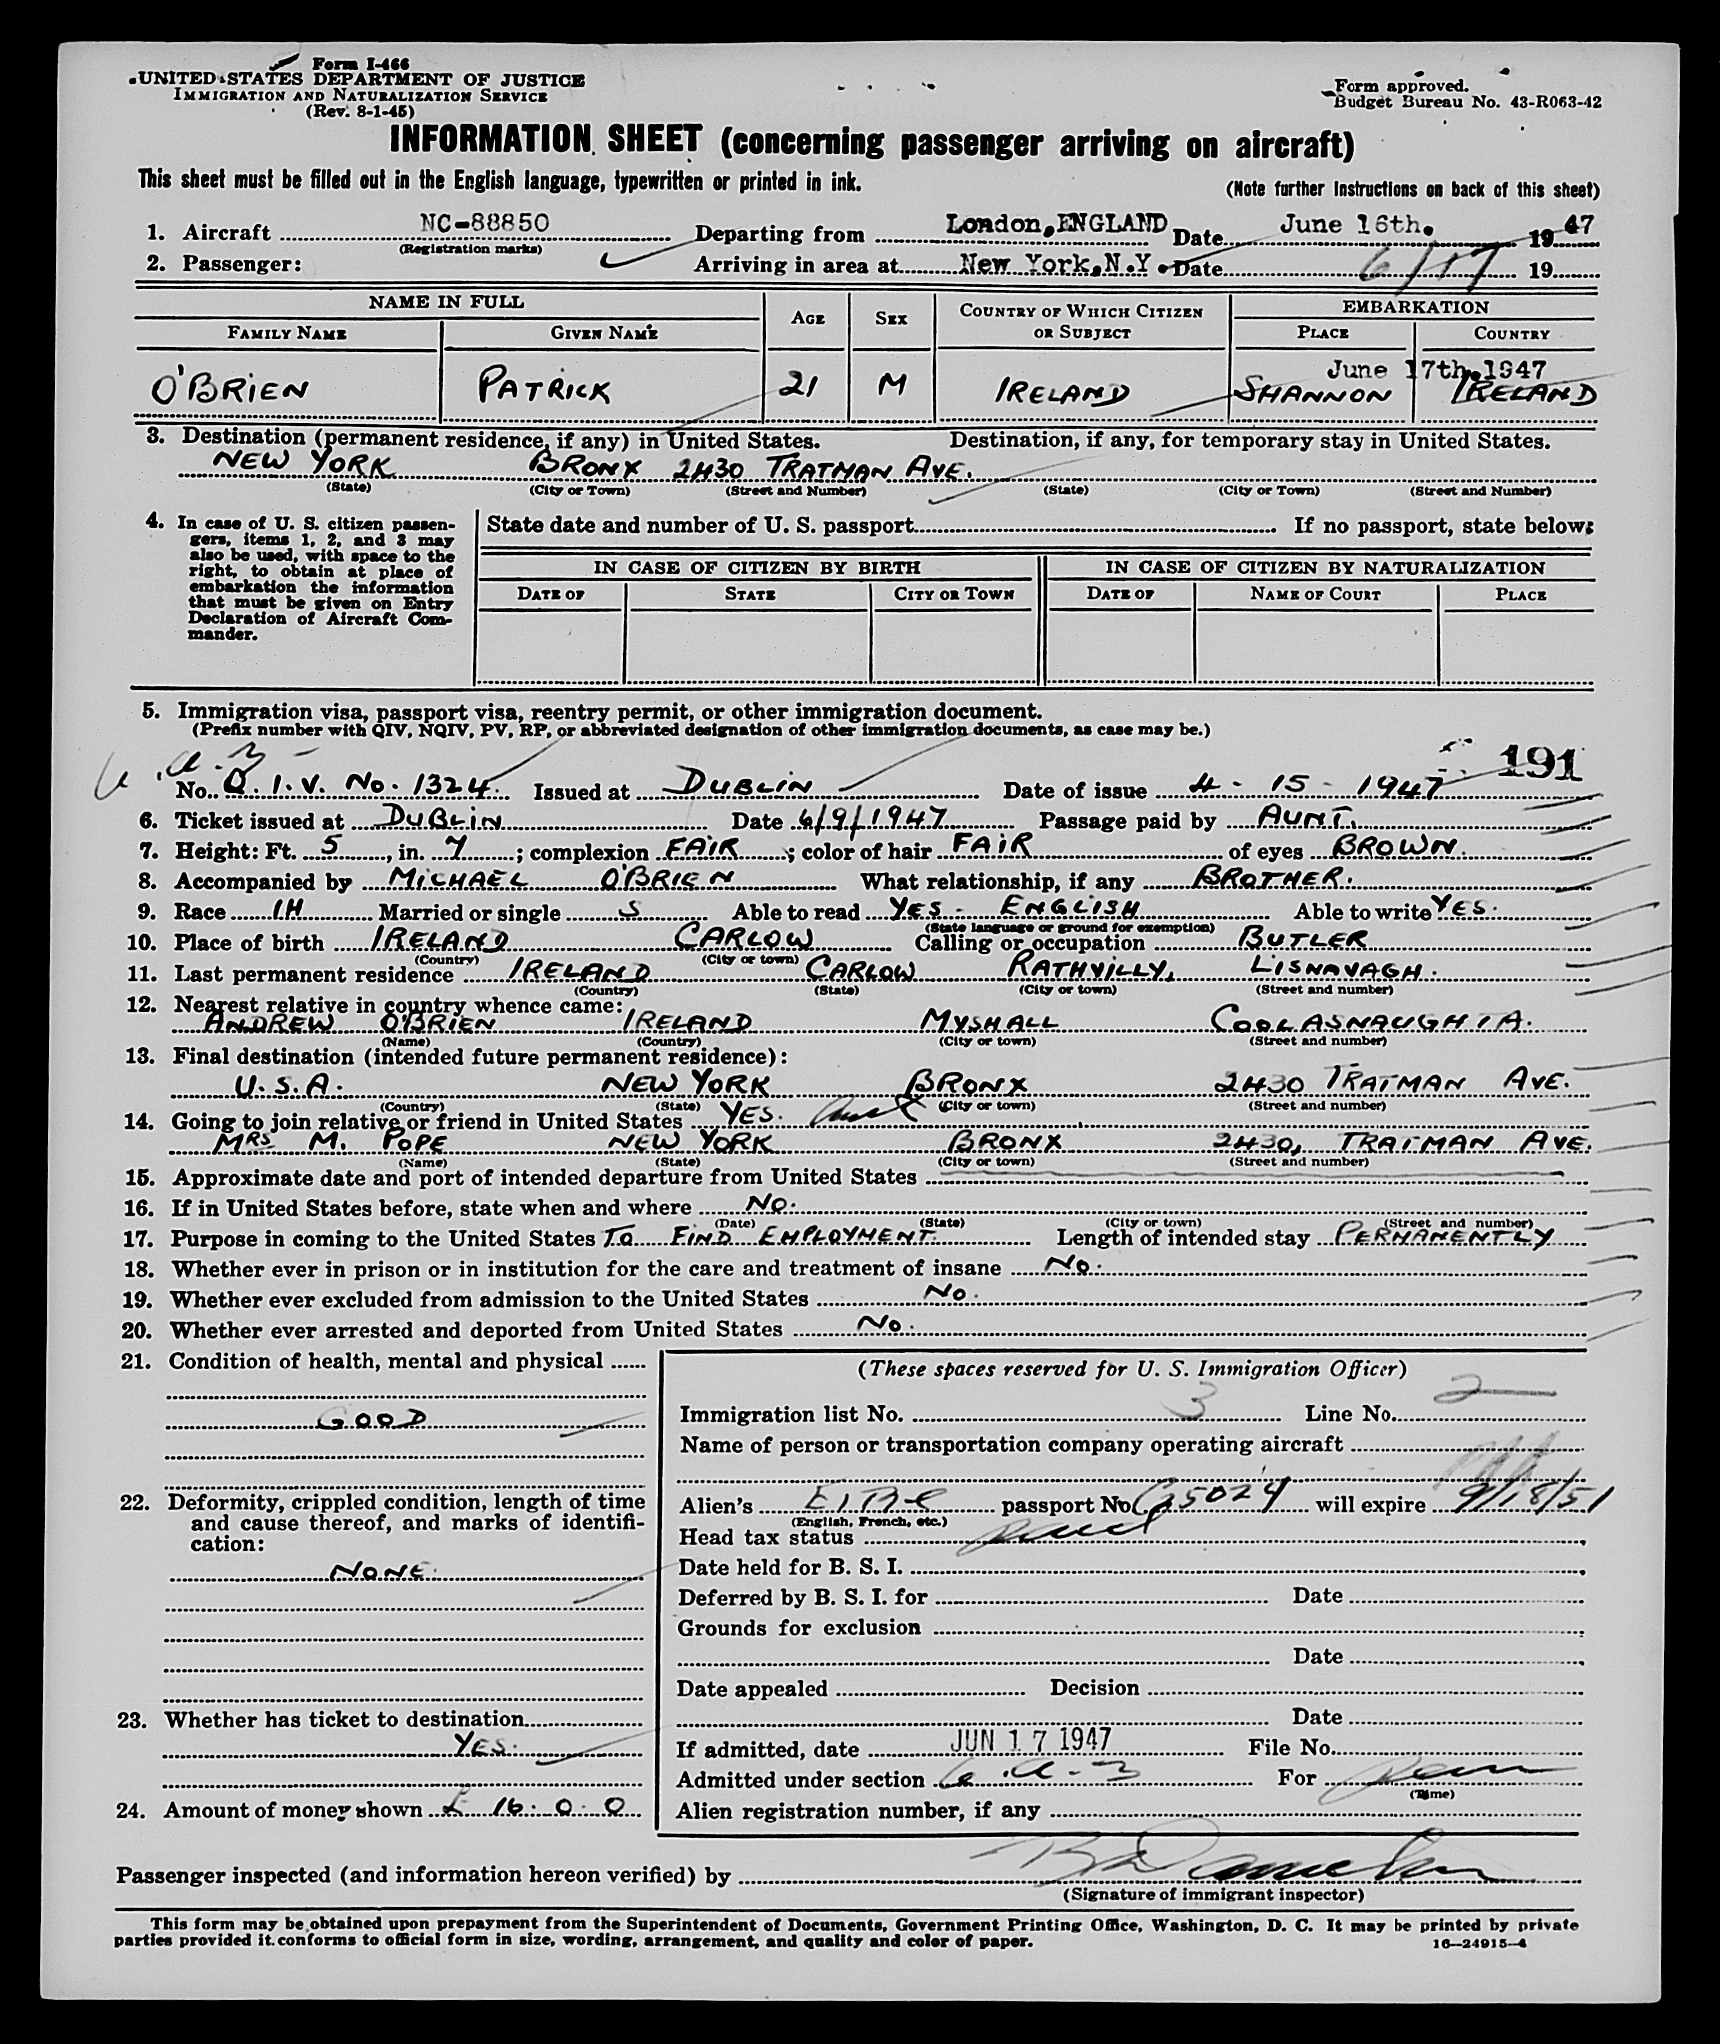 Form I-466
UNITED STATES DEPARTMENT OF JUSTICE
IMMIGRATION AND NATURALIZATION SERVICE
(Rev. 8-1-45)
Form approved.
Budget Bureau No. 43-R063-42
INFORMATION SHEET (concerning passenger arriving on aircraft)
This sheet must be filled out in the English language, typewritten or printed in ink.
(Note further instructions on back of this sheet)
1. Aircraft NC-88850 Departing from London, ENGLAND Date June 16th. 1947
(Registration marks)
2. Passenger: Arriving in area at New York, N.Y. Date 6/17 19
NAME IN FULL AGE SEX COUNTRY OF WHICH CITIZEN OR SUBJECT EMBARKATION
FAMILY NAME GIVEN NAME PLACE COUNTRY
June 17th, 1947
O'BRIEN PATRICK 21 M IRELAND SHANNON IRELAND
3. Destination (permanent residence, if any) in United States. Destination, if any, for temporary stay in United States.
NEW YORK BRONX 2430 TRATMAN AVE.
(State) (City or Town) (Street and Number) (State) (City or Town) (Street and Number)
4. In case of U. S. citizen passengers, items 1, 2, and 3 may also be used, with space to the right, to obtain at place of embarkation the information that must be given on Entry Declaration of Aircraft Commander.
State date and number of U. S. passport If no passport, state below:
IN CASE OF CITIZEN BY BIRTH IN CASE OF CITIZEN BY NATURALIZATION
DATE OF STATE CITY OR TOWN DATE OF NAME OF COURT PLACE
5. Immigration visa, passport visa, reentry permit, or other immigration document.
(Prefix number with QIV, NQIV, PV, RP, or abbreviated designation of other immigration documents, as case may be.)
191
No. Q.I.V. No. 1324. Issued at DUBLIN Date of issue 4-15-1947
6. Ticket issued at DUBLIN Date 6/9/1947 Passage paid by AUNT.
7. Height: Ft. 5, in. 7; complexion FAIR; color of hair FAIR of eyes BROWN.
8. Accompanied by MICHAEL O'BRIEN What relationship, if any BROTHER.
9. Race IH Married or single S Able to read YES - ENGLISH Able to write YES.
(State language or ground for exemption)
10. Place of birth IRELAND CARLOW Calling or occupation BUTLER
(Country) (City or town)
11. Last permanent residence IRELAND CARLOW RATHVILLY, LISNAVAGH.
(Country) (State) (City or town) (Street and number)
12. Nearest relative in country whence came:
ANDREW O'BRIEN IRELAND MYSHALL COOLASNAUGHTA.
(Name) (Country) (City or town) (Street and number)
13. Final destination (intended future permanent residence):
U.S.A. NEW YORK BRONX 2430 TRATMAN AVE.
(Country) (State) (City or town) (Street and number)
14. Going to join relative or friend in United States YES. Aunt
MRS M. POPE NEW YORK BRONX 2430, TRATMAN AVE.
(Name) (State) (City or town) (Street and number)
15. Approximate date and port of intended departure from United States
16. If in United States before, state when and where No.
(Date) (State) (City or town) (Street and number)
17. Purpose in coming to the United States TO FIND EMPLOYMENT. Length of intended stay PERMANENTLY
18. Whether ever in prison or in institution for the care and treatment of insane No.
19. Whether ever excluded from admission to the United States No.
20. Whether ever arrested and deported from United States No.
21. Condition of health, mental and physical
GOOD
22. Deformity, crippled condition, length of time and cause thereof, and marks of identification:
NONE.
23. Whether has ticket to destination
YES.
24. Amount of money shown £ 16.0.0
(These spaces reserved for U. S. Immigration Officer)
Immigration list No. 3 Line No. 2
Name of person or transportation company operating aircraft
Alien's Eire passport No. C25024 will expire 9/18/51
(English, French, etc.)
Head tax status
Date held for B. S. I.
Deferred by B. S. I. for Date
Grounds for exclusion
Date
Date appealed Decision
Date
If admitted, date JUN 17 1947 File No.
Admitted under section 6.a-3 For
(Time)
Alien registration number, if any
Passenger inspected (and information hereon verified) by
(Signature of immigrant inspector)
This form may be obtained upon prepayment from the Superintendent of Documents, Government Printing Office, Washington, D. C. It may be printed by private
parties provided it conforms to official form in size, wording, arrangement, and quality and color of paper.
16—24915-4